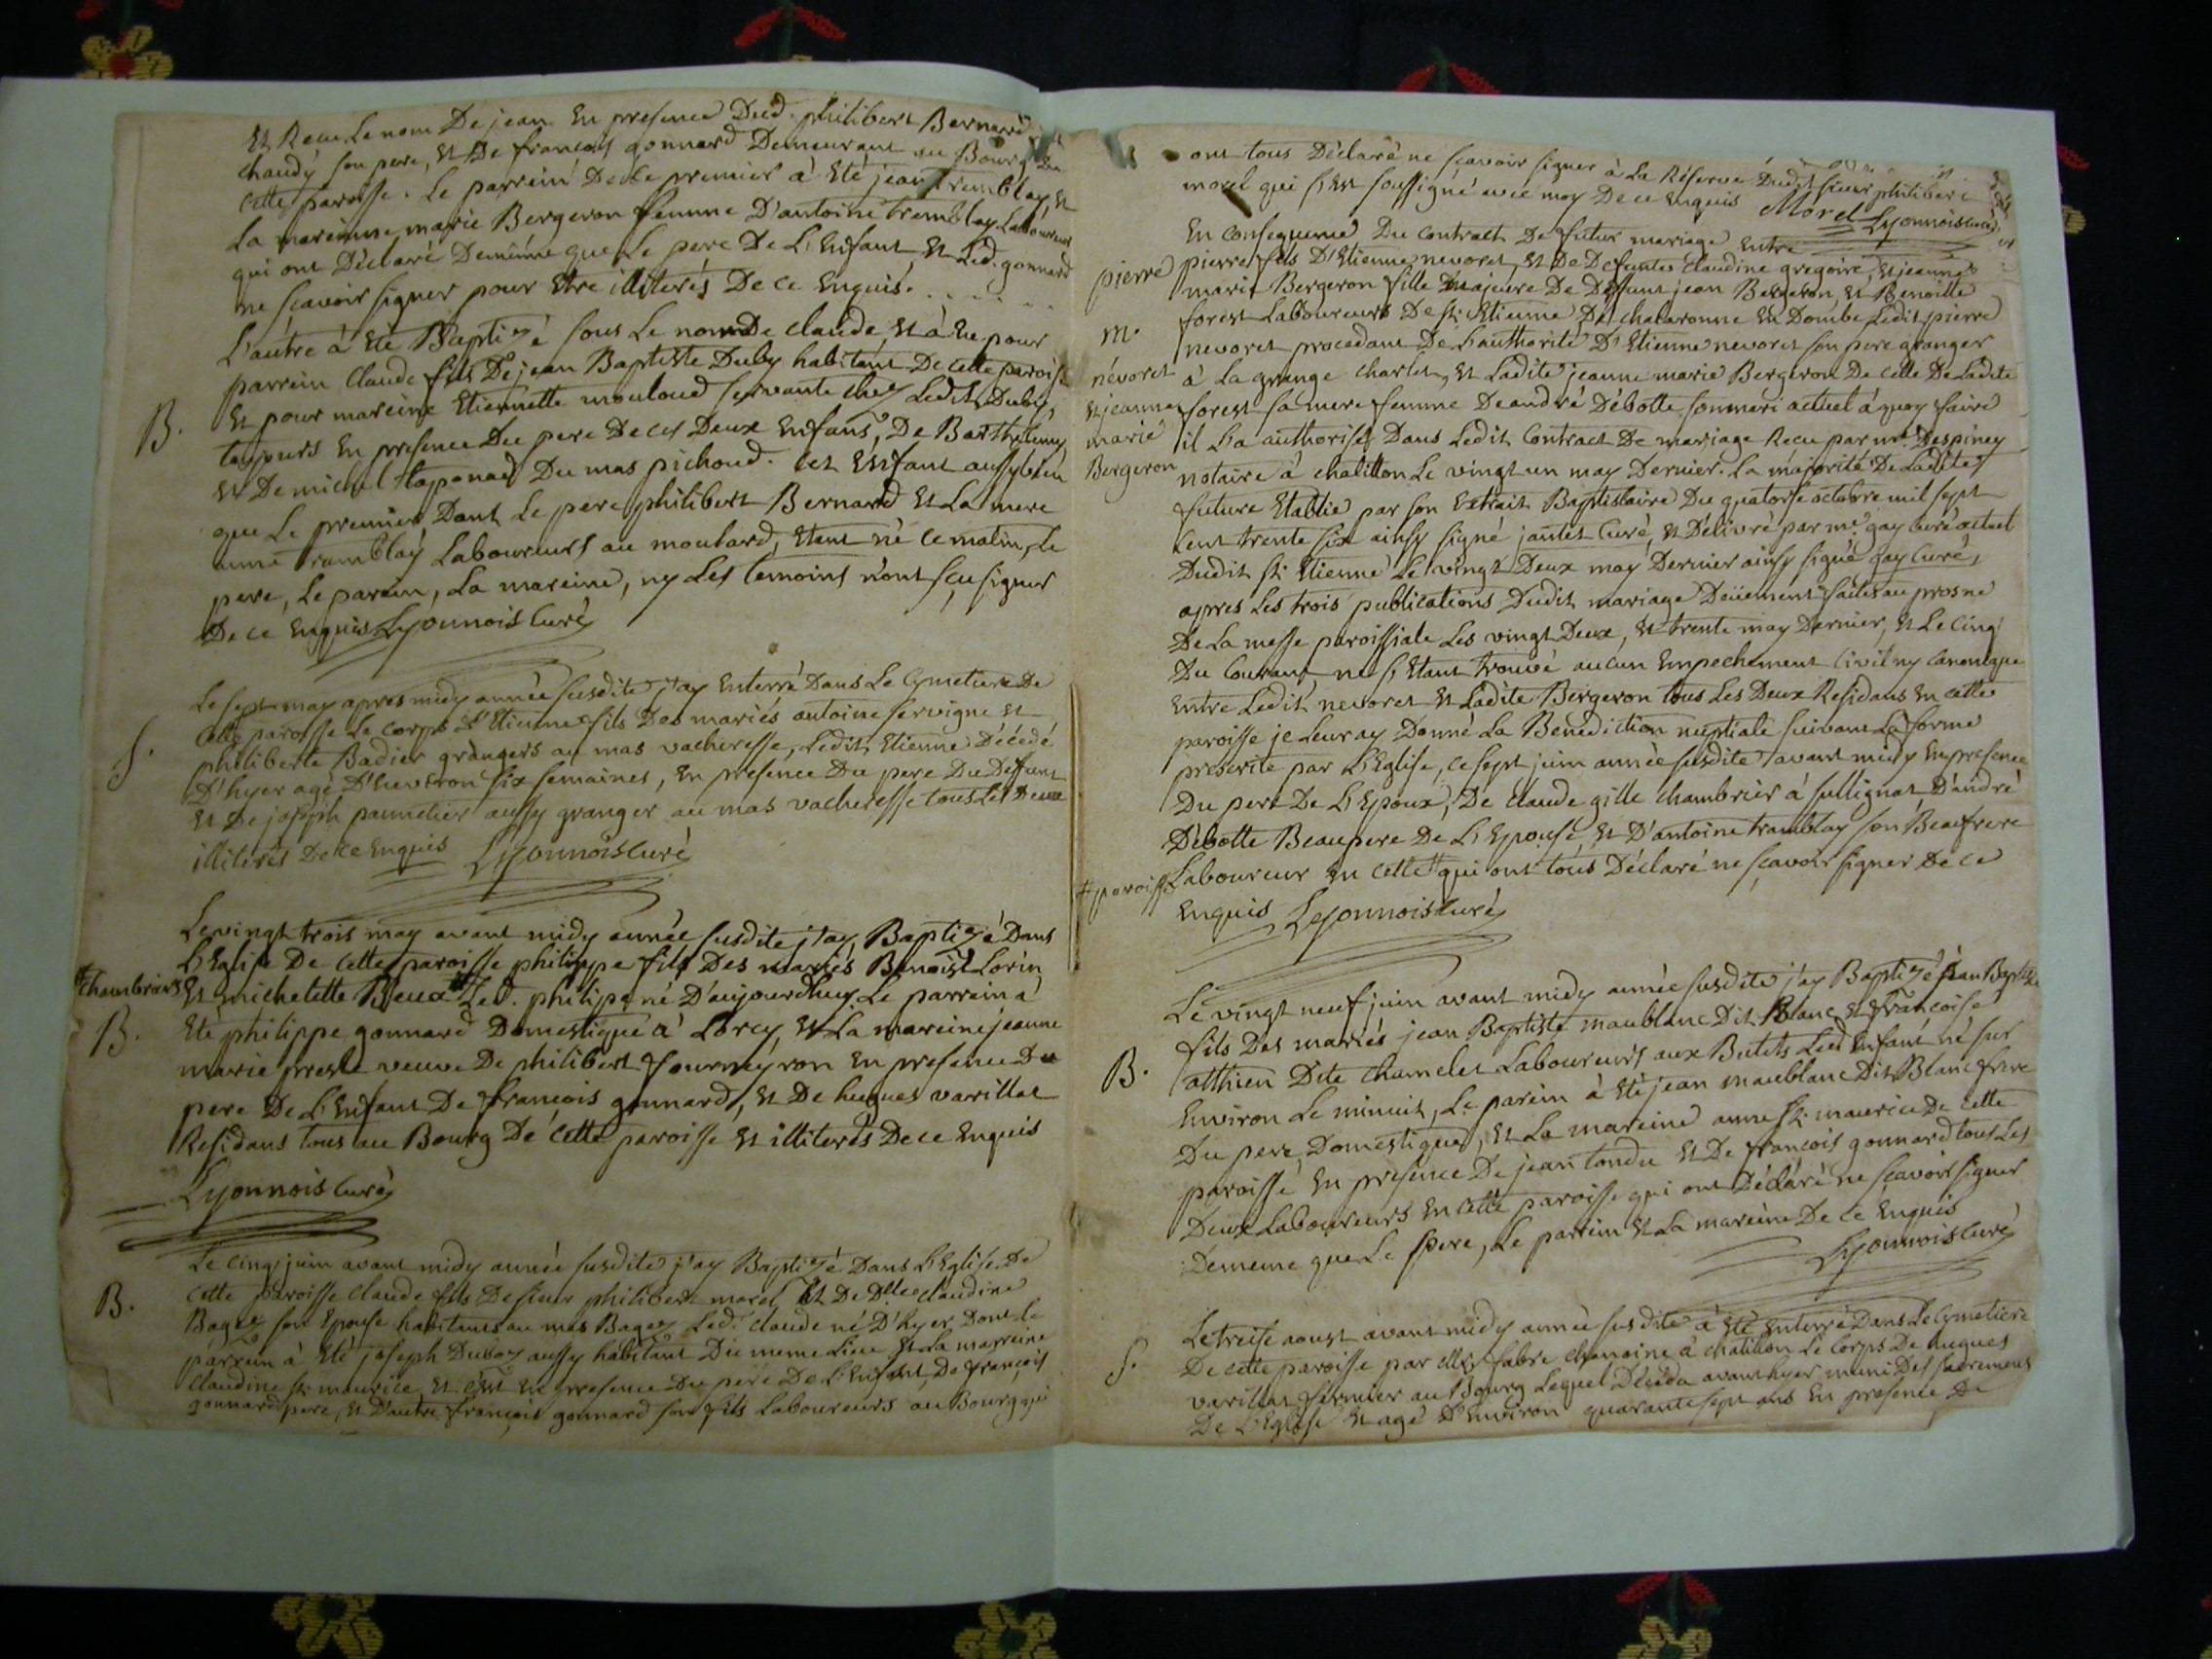 Et Recu Le nom De jean En presence Dud. philibert Bernard
chaudy son pere, Et De francois gonnard Demeurant au Bourg De
cette paroisse. Le parrein De ce premier à Eté jean tremblay, Et
La mareinne marie Bergeron femme D'antoine tremblay Laboureurs
qui ont Déclaré De même que Le pere De L'Enfant Et Led. gonnard
ne scavoir signer pour Etre illiterés De ce Enquis.
L'autre à Eté Baptizé sous Le nom De claude, Et à Eu pour
parrein Claude fils De jean Baptiste Duby habitant De cette paroisse
B.
Et pour mareine Etiennette mouloud servante chez Ledit Duby,
toujours En presence Du pere De ces Deux Enfans, De Barthelemy
Et De michel taponad Du mas pichoud. cet Enfant aussy bien
que Le premier Dont Le pere philibert Bernard Et La mere
anne Tramblay Laboureurs au moulard, Etant né ce matin, Le
pere, Le parein, La mareine, ny Les temoins n'ont scu signer
De ce Enquis Lyonnois Curé
Le sept may apres midy année susdite j'ay Enterré Dans Le Cymetiere De
S.
cette paroisse Le corps D'Etienne fils Des mariés antoine servigne Et
philiberte Badier grangers au mas vacheresse, Ledit Etienne Décédé
D'hyer agé D'Environ six semaines, En presence Du pere Du Deffunt
Et De joseph pannetier aussy granger au mas vacheresse tous Les Deux
illiterés De ce Enquis Lyonnois Curé
Le vingt trois may avant midy année susdite j'ay Baptizé Dans
L'Eglise De cette paroisse philippe fils Des mariés Benoist Lorin
#chambriers Et michelette Beux # Led. philipe né D'aujourdhuy Le parrein à
B.
Eté philippe gonnard Domestique à Lorcy, Et La mareine jeanne
marie presle veuve De philibert fourneyron En presence Du
pere De L'Enfant De francois gonnard, Et De hugues varillat
Residans tous au Bourg De cette paroisse Et illiterés De ce Enquis
Lyonnois Curé
Le cinq juin avant midy année susdite j'ay Baptizé Dans L'Eglise De
B.
cette paroisse Claude fils De sieur philibert morel Et De Dlle Claudine
Bagez son Epouse habitants au mas Bagez Led. Claude né D'hyer, Dont Le
parrein à Eté joseph Duboz aussy habitant Du meme Lieu Et La marreine
Claudine st. maurice, Et C'est En presence Du pere De L'Enfant, De françois
gonnard pere, Et D'autre françois gonnard son fils Laboureurs au Bourg qui
ont tous Déclaré ne scavoir signer à La Réserve Dudit sieur philibert
morel qui s'est soussigné avec moy De ce Enquis Morel Lyonnois Curé
En consequence Du contract De futur mariage Entre
pierre pierre fils D'Etienne nevoret, Et De Defunte Claudine gregoire, Et jeanne
marie Bergeron fille majeure De Deffunt jean Bergeron, Et Benoitte
m. forest Laboureurs De st. Etienne De chalaronne En Dombe Ledit pierre
nevoret procedant De L'authorité D'Etienne nevoret son pere granger
névoret à La grange charlet, Et Ladite jeanne marie Bergeron De celle De Ladite
Et jeanne forest sa mere femme De andré Débotte son mari actuel à quoy faire
marie il L'a authorisée Dans Ledit Contract De mariage Recu par me. Despiney
Bergeron notaire à chatillon Le vingt un may Dernier. La majorité De Ladite
future Etablie par son Extrait Baptistaire Du quatorse octobre mil sept
cent trente six ainsy signé jantet Curé, Et Délivré par me. gay curé actuel
Dudit st. Etienne Le vingt Deux may Dernier ainsy signé gay Curé,
apres Les trois publications Dudit mariage Düement faites au prosne
De La messe paroissiale Les vingt Deux, Et trente may Dernier, Et Le cinq
Du courant, ne s'Etant trouvé aucun Empechement Civil ny canonique
Entre Ledit nevoret Et Ladite Bergeron tous Les Deux Residans En cette
paroisse je Leur ay Donné La Benediction nuptiale suivant La forme
prescrite par L'Eglise, ce sept juin année susdite avant midy En presence
Du pere De L'Epoux, De Claude gille chambrier à sullignat, D'andré
Débotte Beaupere De L'Epouse, Et D'antoine tramblay son Beaufrere
#paroisse Laboureur En cette # qui ont tous Déclaré ne scavoir signer De ce
Enquis Lyonnois Curé
Le vingt neuf juin avant midy année susdite j'ay Baptizé jean Baptiste
fils Des mariés jean Baptiste maublanc Dit Blanc, Et Francoise
B.
atthieu Dite chamelet Laboureurs aux Butets Led. Enfant né sur
Environ Le minuit, Le parein à Eté jean maublanc Dit Blanc frere
Du pere, Domestique, Et La mareine anne st. maurice De cette
paroisse En presence De jean tondu Et De francois gonnard tous Les
Deux Laboureurs En cette paroisse qui ont Déclaré ne scavoir signer
De meme que Le Pere, Le parrein Et La mareine De ce Enquis
Lyonnois Curé
Le treise aoust avant midy année susdite à Eté Enterré Dans Le Cymetiere
S.
De cette paroisse par Mr. fabre chanoine à chatillon Le Corps De hugues
varillat fermier au Bourg Lequel Décéda avanthyer muni Des sacremens
De L'Eglise Et agé D'Environ quarante sept ans En presence De